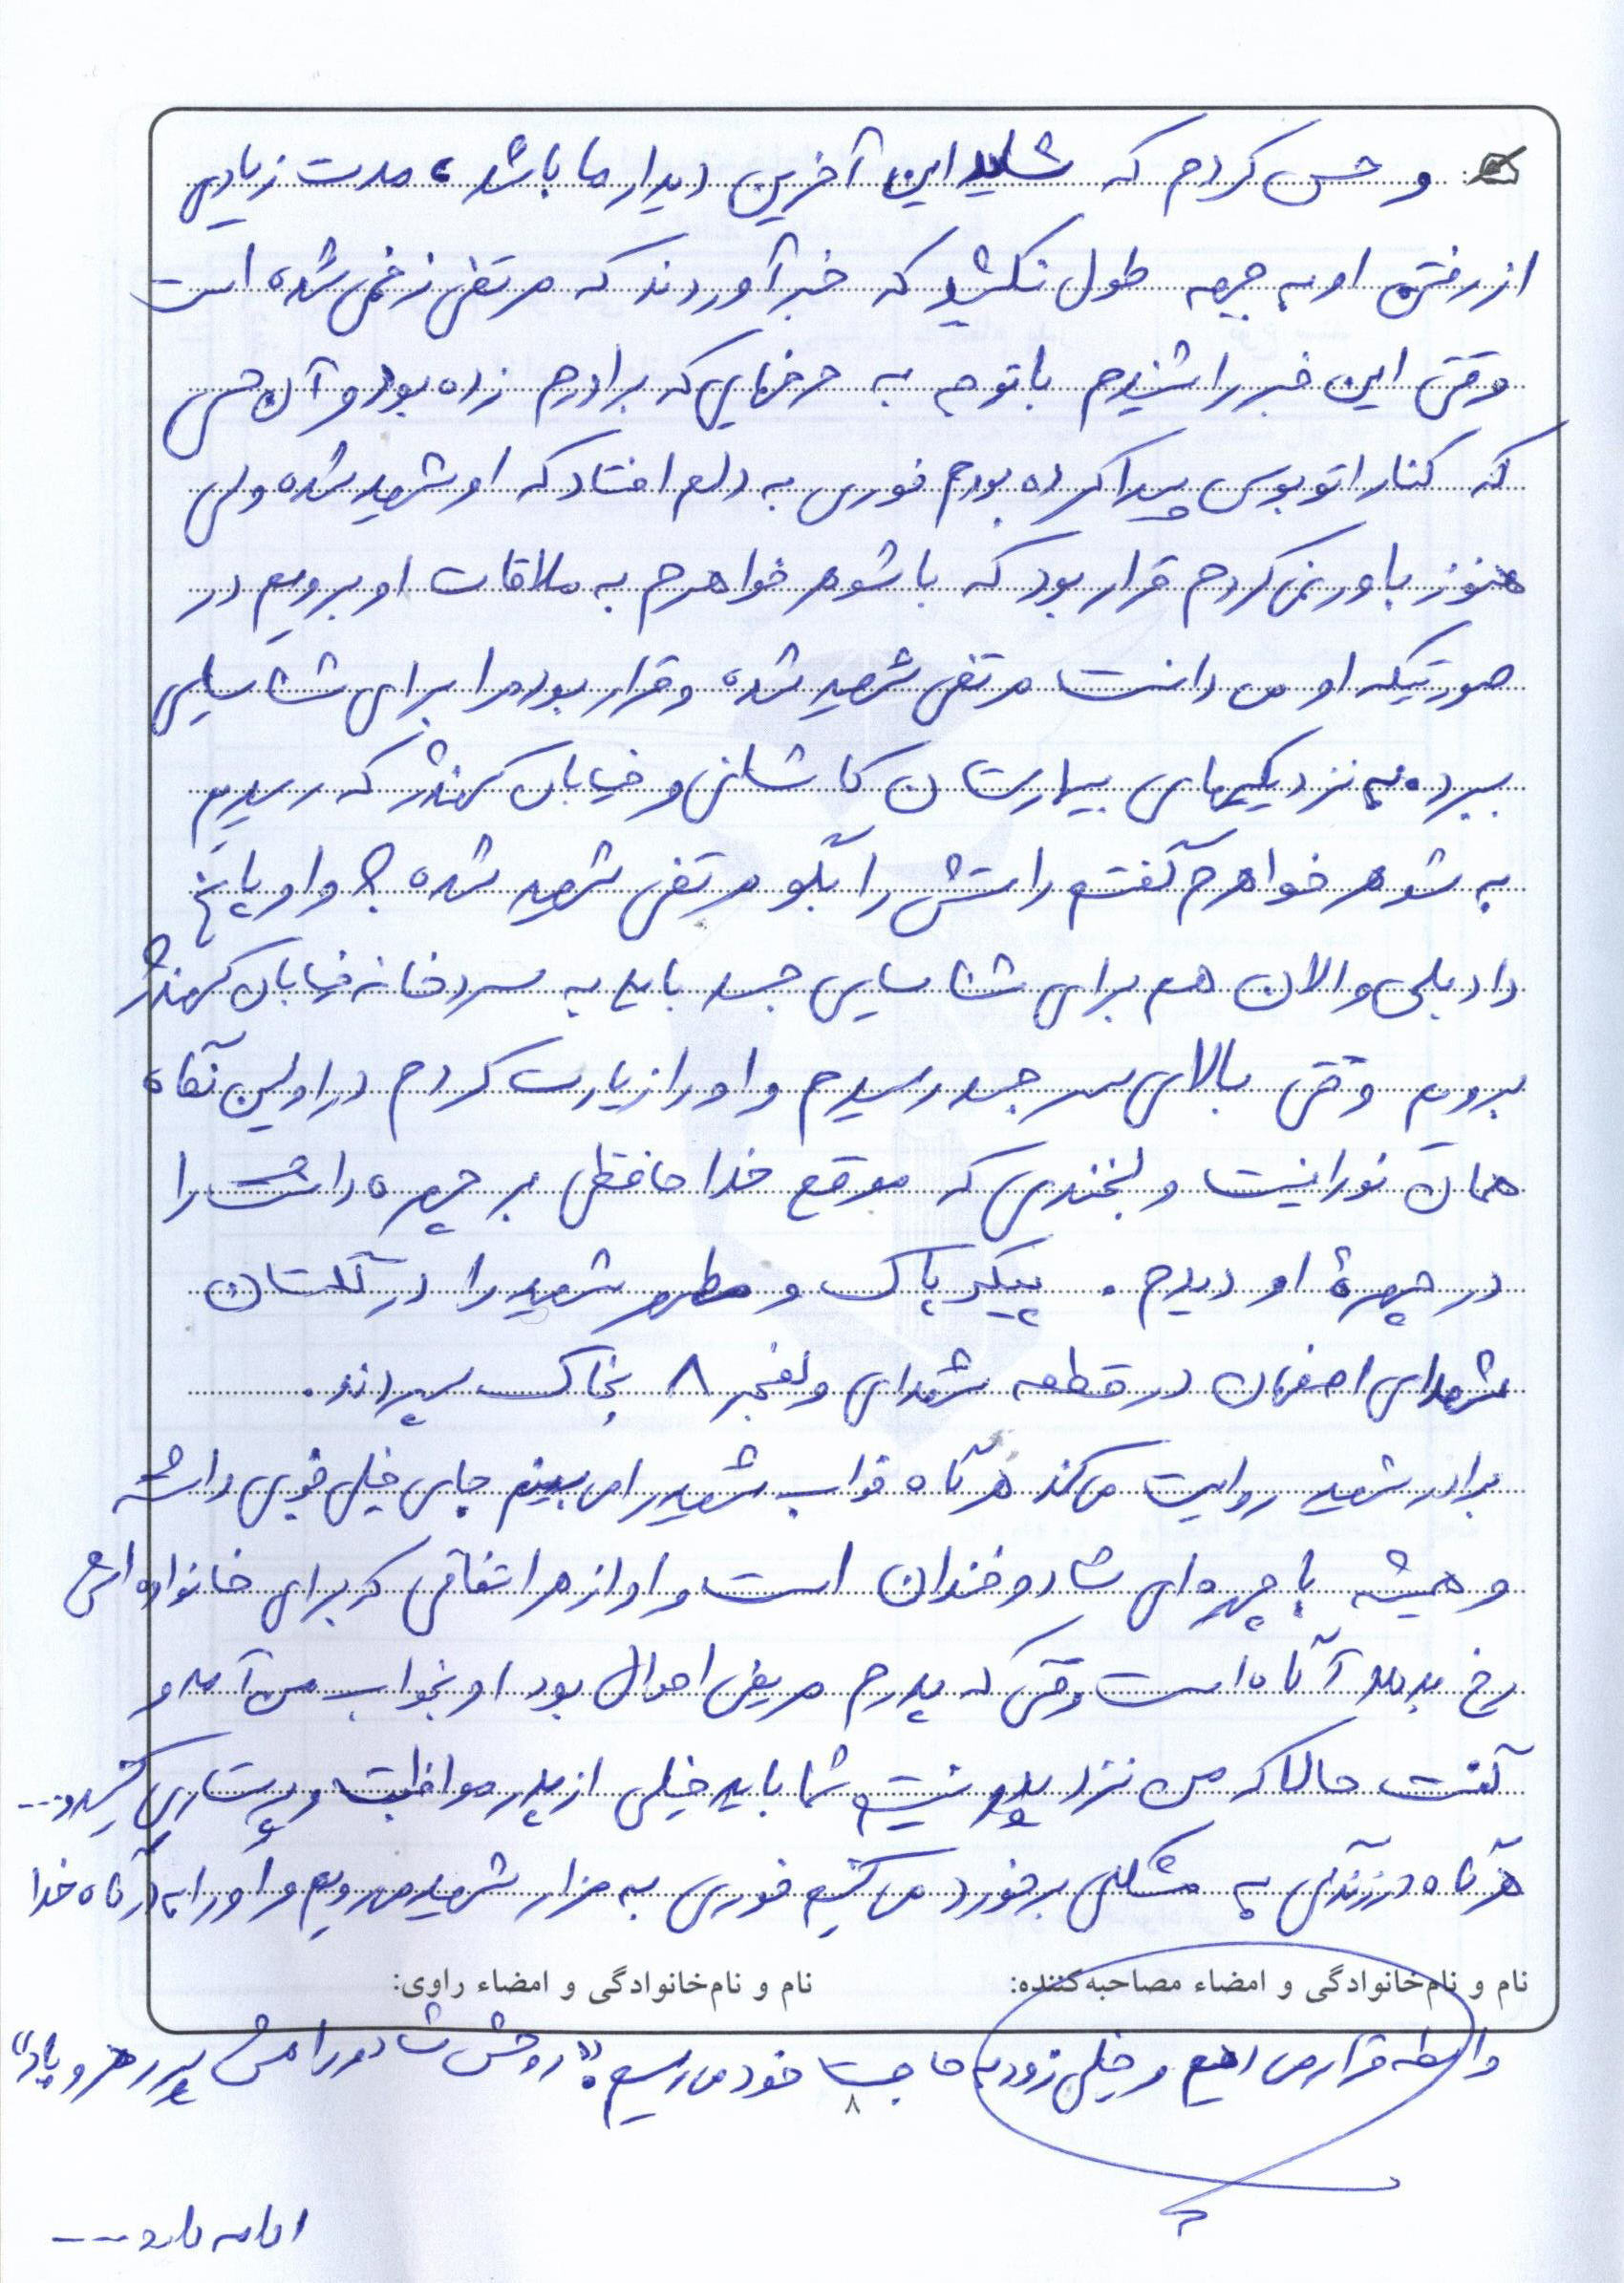 و حس کردم که شاید این آخرین دیدار ما باشد، مدت زیادی
از رفتن او به جبهه طول نکشید که خبر آوردند که مرتضی زخمی شده است
وقتی این خبر را شنیدم با توجه به حرفهایی که برادرم زده بود و آن حس
که کنار اتوبوس پیدا کرده بودم فوری به دلم افتاد که او شهید شده ولی
هنوز باور نمی کردم قرار بود که با شوهر خواهرم به ملاقات او برویم در
صورتیکه او می دانست مرتضی شهید شده و قرار بود مرا برای شناسایی
ببرد، به نزدیکیهای بیمارستان کاشانی و خیابان کهندژ که رسیدیم
به شوهر خواهرم گفتم راستش را بگو مرتضی شهید شده؟ و او پاسخ
داد بلی و الان هم برای شناسایی جسد باید به سردخانه خیابان کهندژ
برویم وقتی بالای سر جسد رسیدم و او را زیارت کردم در اولین نگاه
همان نورانیت و لبخندی که موقع خداحافظی بر چهره داشت را
در چهرۀ او دیدم. پیکر پاک و مطهر شهید را در گلستان
شهدای اصفهان در قطعه شهدای والفجر ۸ بخاک سپردند.
برادر شهید روایت می کند هرگاه خواب شهید را می بینم جای خیلی خوبی داشته
و همیشه با چهره ای شاد و خندان است و او از هر اتفاقی که برای خانواده اش
رخ بدهد آگاه است وقتی که پدرم مریض احوال بود او بخواب من آمد و
گفت حالا که من نزد پدر نیستم شما باید خیلی از پدر مواظبت و پرستاری کنید...
هرگاه در زندگی به مشکلی برخورد می کنیم فوری به مزار شهید می رویم و او را به درگاه خدا
نام و نام‌خانوادگی و امضاء مصاحبه‌کننده: نام و نام‌خانوادگی و امضاء راوی:
واسطه قرار می دهیم و خیلی زود به حاجت خود می رسیم. "روحش شاد و راهش پر رهرو باد"
۸
ادامه دارد ---